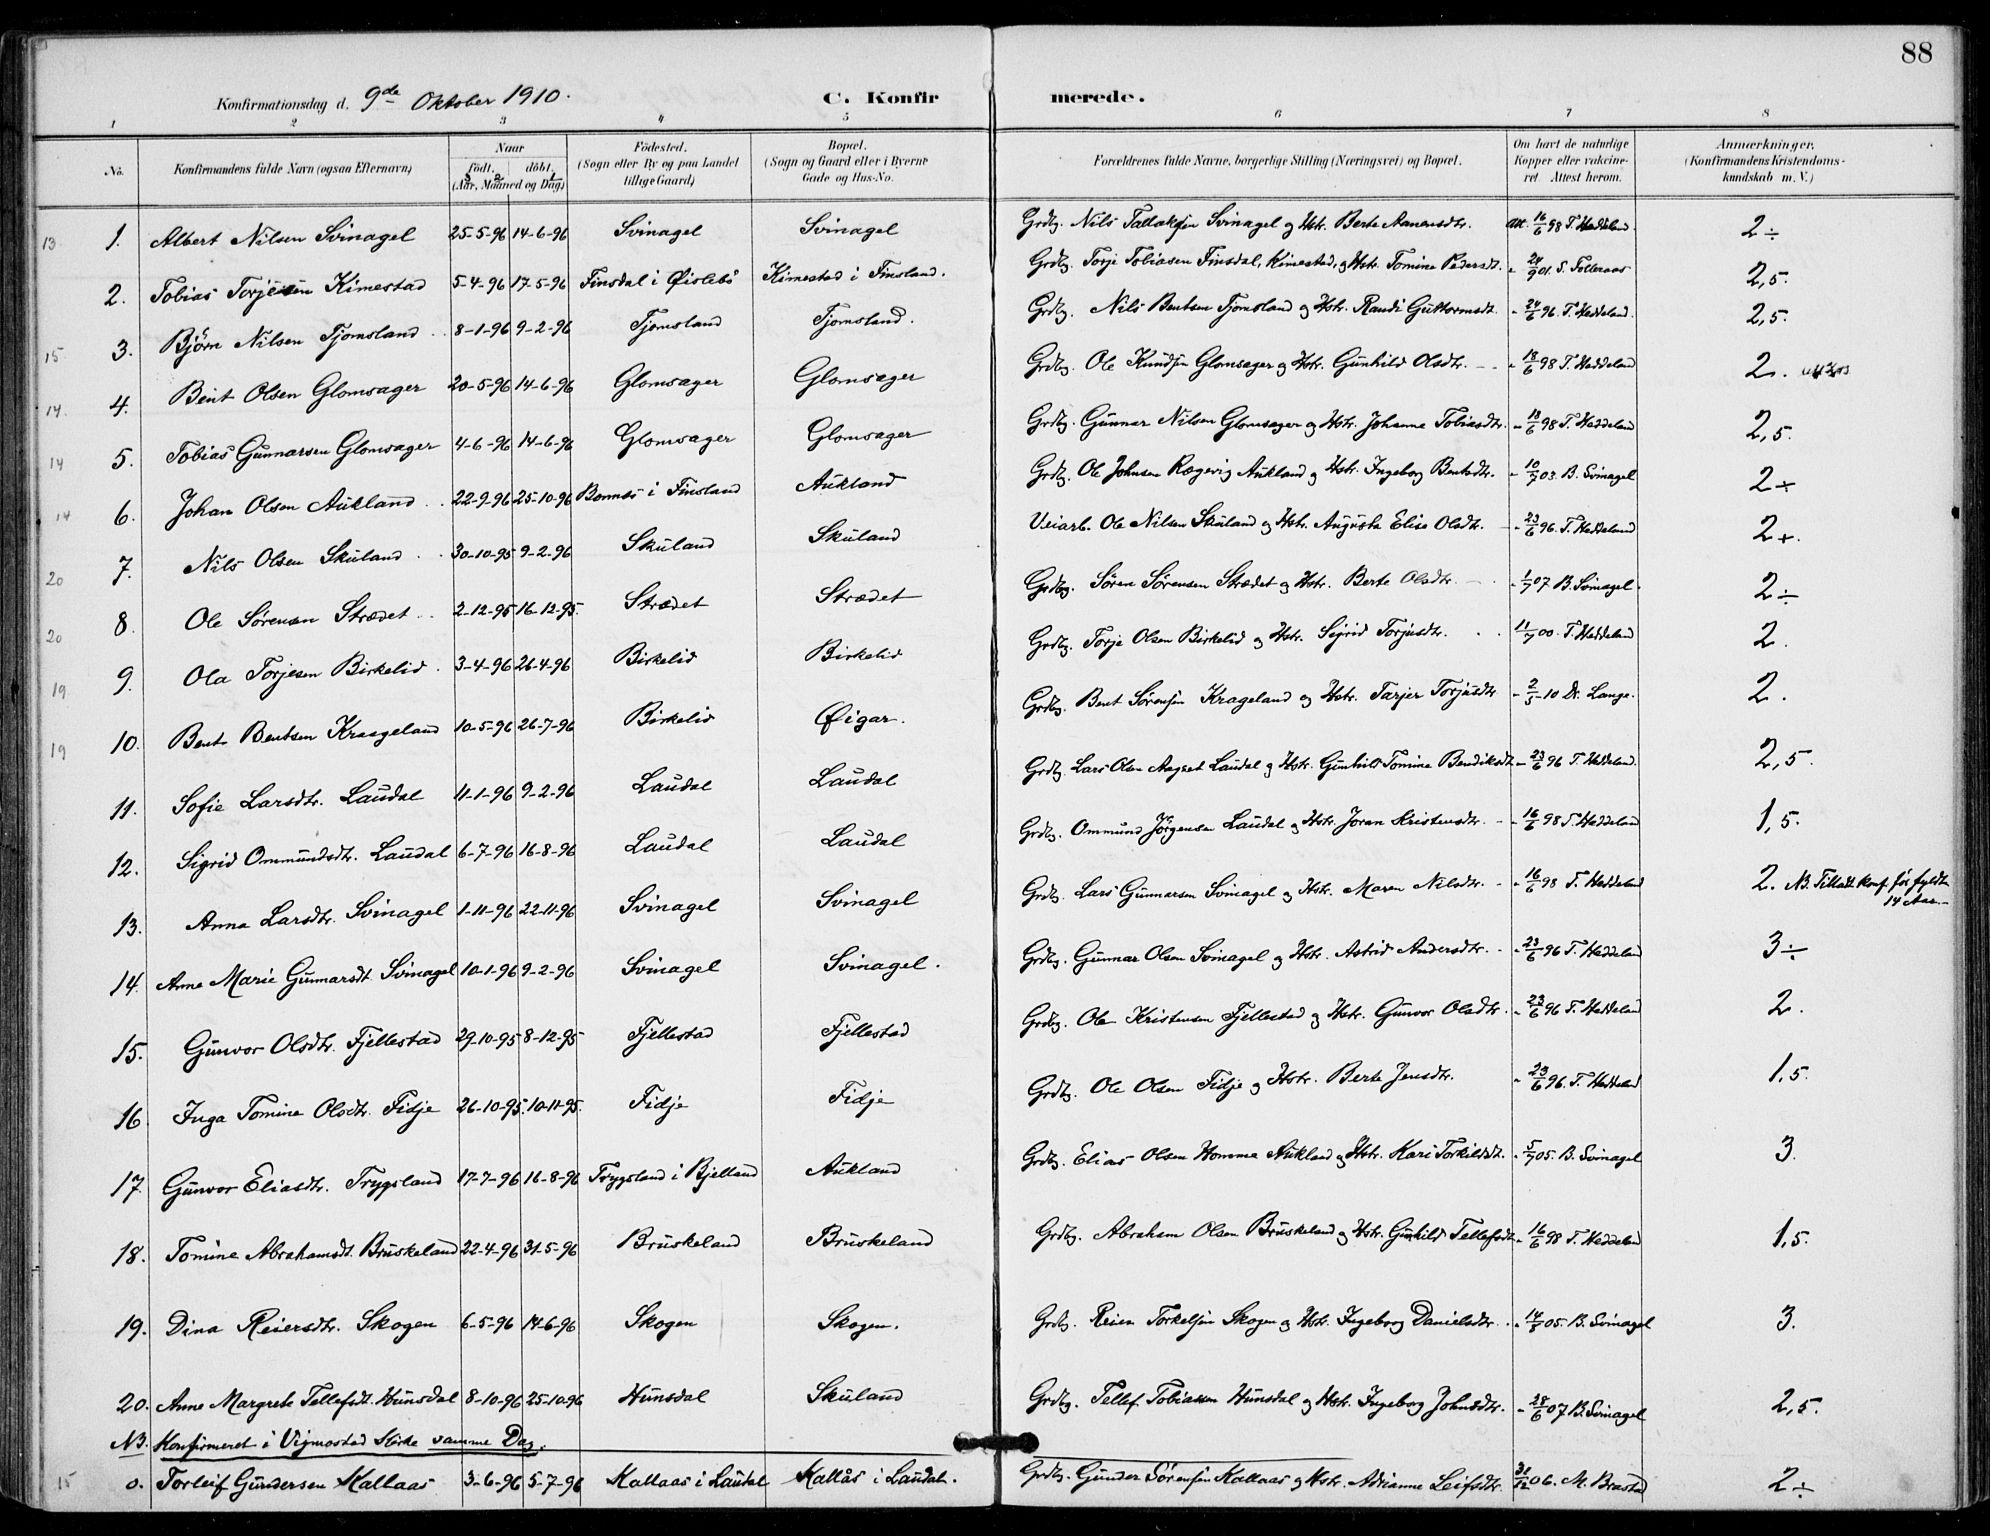 88
Konfirmationsdag d. 9de Oktober 1910. C. Konfirmerede.
1 2 3 4 5 6 7 8
No. Konfirmandens fulde Navn (ogsaa Efternavn) Naar födt, döbt, (Aar, Maaned og Dag) Födested. (Sogn eller By og paa Landet tillige Gaard) Bopæl. (Sogn og Gaard eller i Byerne Gade og Hus-No. Forældrenes fulde Navne, borgerlige Stilling (Næringsvei) og Bopæl. Om havt de naturlige Kopper eller vakcineret Attest herom. Anmærkninger. (Konfirmandens Kristendomskundskab m. V.)
13 1. Albert Nilsen Svinagel 25-5-96 14-6-96 Svinagel Svinagel Grdbg. Nils Tallaksen Svinagel og Hstr. Berte Aanensdtr. Att. 16/6 98 T. Heddeland 2÷
2. Tobias Torjesen Kimestad 5-4-96 17-5-96 Finsdal i Øislebö Kimestad i Finsland. Grdbg. Torje Tobiasen Finsdal, Kimestad, og Hstr. Tomine Pedersdt. - 24/9 01. S. Folleraas 2,5.
15 3. Björn Nilsen Tjomsland 8-1-96 9-2-96 Tjomsland Tjomsland. Grdbg. Nils Bentsen Tjomsland og Hstr. Randi Guttormsdt. - 24/6 96. T. Heddeland. 2,5.
14. 4. Bent Olsen Glomsager 20-5-96 14-6-96 Glomsager Glomsager Grdbg. Ole Knudsen Glomsager og Hstr. Gunhild Olsdtr. - 18/6 98 T. Heddeland 2.
14 5. Tobias Gunnarsen Glomsager 4-6-96 14-6-96 Glomsager Glomsager Grdbg. Gunnar Nilsen Glomsager og Hstr. Johanne Tobiasdtr. - 18/6 98 T. Heddeland 2,5.
14 6. Johan Olsen Aukland 22-9-96 25-10-96 i Finsland Aukland Grdbg. Ole Johnsen Rægevig Aukland og Hstr. Ingeborg Bentsdtr. - 10/7 03. B. Svinagel 2+
20 7. Nils Olsen Skuland 30-10-95 9-2-96 Skuland Skuland Veiarb. Ole Nilsen Skuland og Hstr. Augusta Elise Olsdtr. - 23/6 96. T. Heddeland 2+.
20 8. Ole Sörensen Strædet 2-12-95 16-12-95. Strædet Strædet Grdbg. Sören Sörensen Strædet og Hstr. Berte Olsdtr. - 1/7 07 B. Svinagel. 2÷
19 9. Ola Torjesen Birkelid 3-4-96 26-4-96 Birkelid Birkelid Grdbg. Torje Olsen Birkelid og Hstr. Sigrid Torjusdtr. 11/7 00. T. Heddeland 2.
19 10. Bent Bentsen Kraageland 10-5-96 26-7-96 Birkelid Øigar. Grdbg. Bent Sörensen Krageland og Hstr. Tarjer Torjusdtr - 2/5 10 Dr. Lange. 2.
11. Sofie Larsdtr. Laudal 11-1-96 9-2-96 Laudal Laudal Grdbg. Lars Olsen Laudal og Hstr. Gunhild Tomine Bendiksdt. - 23/6 96 T. Heddeland. 2,5.
12. Sigrid Ommundsdtr. Laudal 6-7-96 16-8-96 Laudal Laudal Grdbg. Ommund Jörgensen Laudal og Hstr. Joran Kristensdtr. - 16/6 98 T. Heddeland 1,5.
13. Anna Larsdtr. Svinagel 1-11-96 22-11-96 Svinagel Svinagel Grdbg. Lars Gunnarsen Svinagel og Hstr. Maren Nilsdtr. - 16/6 98 T. Heddeland 2. NB. Tilladt konf. før fyldte 14 Aar.
14. Anne Marie Gunnarsdt. Svinagel 10-1-96 9-2-96 Svinagel Svinagel. Grdbg. Gunnar Olsen Svinagel og Hstr. Astrid Andersdtr. - 23/6 96 T. Heddeland 3÷
15. Gunvor Olsdtr. Fjellestad 29-10-95 8-12-95 Fjellestad Fjellestad Grdbg. Ole Kristensen Fjellestad og Hstr. Gunvor Olsdtr. - 23/6 96 T. Heddeland 2.
16 Inga Tomine Olsdtr. Fidje 26-10-95. 10-11-95. Fidje Fidje Grdbg. Ole Olsen Fidje og Hstr. Berte Jensdtr. - 23/6 96. T. Heddeland 1,5.
17. Gunvor Eliasdtr. Trygsland 17-7-96 16-8-96 Trygsland i Bjelland Aukland Grdbg. Elias Olsen Homme Aukland og Hstr. Kari Torkildsdt. - 5/7 05. B. Svinagel 3.
18. Tomine Abrahamsdt. Bruskeland 22-4-96 31-5-96 Bruskeland Bruskeland Grdbg. Abraham Olsen Bruskeland og Hstr. Gunhild Tellefsdt. - 16/6 98 T. Heddeland 1,5.
19. Dina Reiersdtr. Skogen 6-5-96 14-6-96 Skogen Skogen. Grdbg. Reier Torkelsen Skogen og Hstr. Ingeborg Danielsdtr. - 14/8 05. B. Svinagel 3.
20. Anne Margrete Tellefsdt. Hunsdal 8-10-96 25-10-96 Hunsdal Skuland Grdbg. Tellef Tobiassen Hunsdal og Hstr. Ingeborg Johnsdtr. - 28/6 07 B. Svinagel 2,5.
NB. Konfirmeret i Vigmostad Kirke samme Dag.
15 0. Torleif Gundersen Kallaas 3-6-96 5-7-96 Kallaas i Laudal Kallås i Laudal. Grdbg. Gunder Sörensen Kallaas og Hstr. Adrianne Leifsdtr. 31/12 06. M. Brastad 2÷